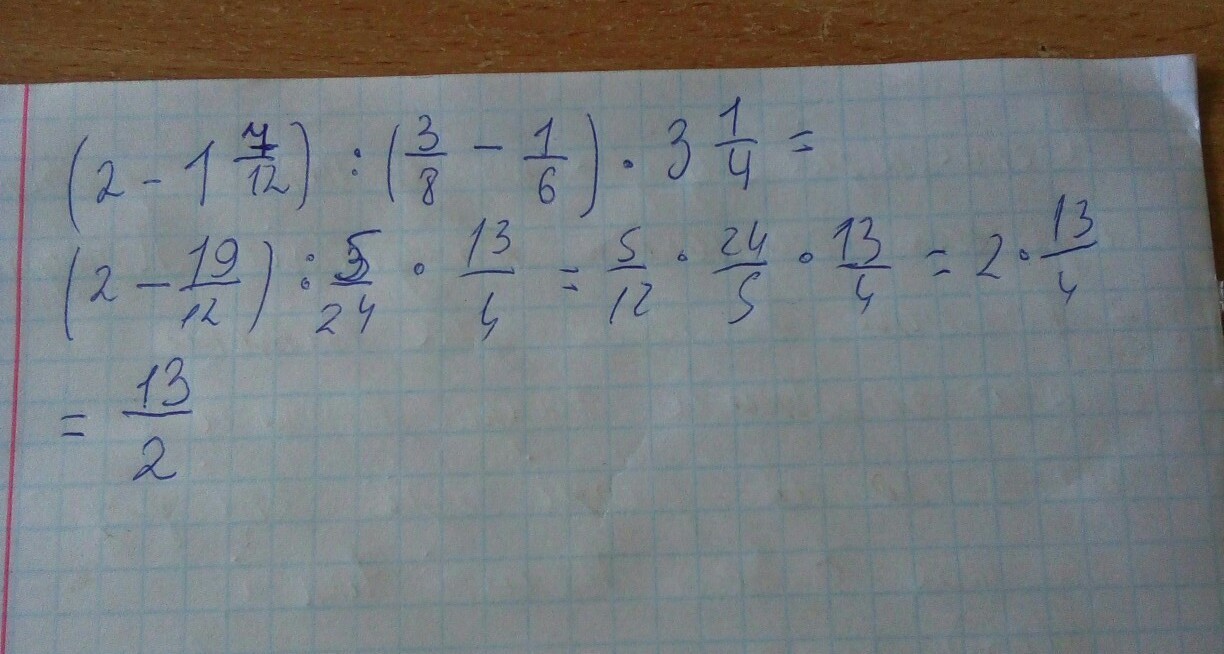 (2 - 1 7/12) : (3/8 - 1/6) · 3 1/4 =
(2 - 19/12) : 5/24 · 13/4 = 5/12 · 24/5 · 13/4 = 2 · 13/4
= 13/2